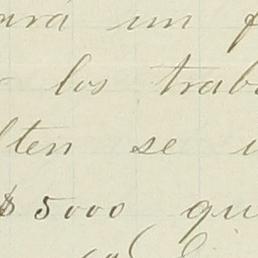 ará un f
los trab
lten se
$5000 qu